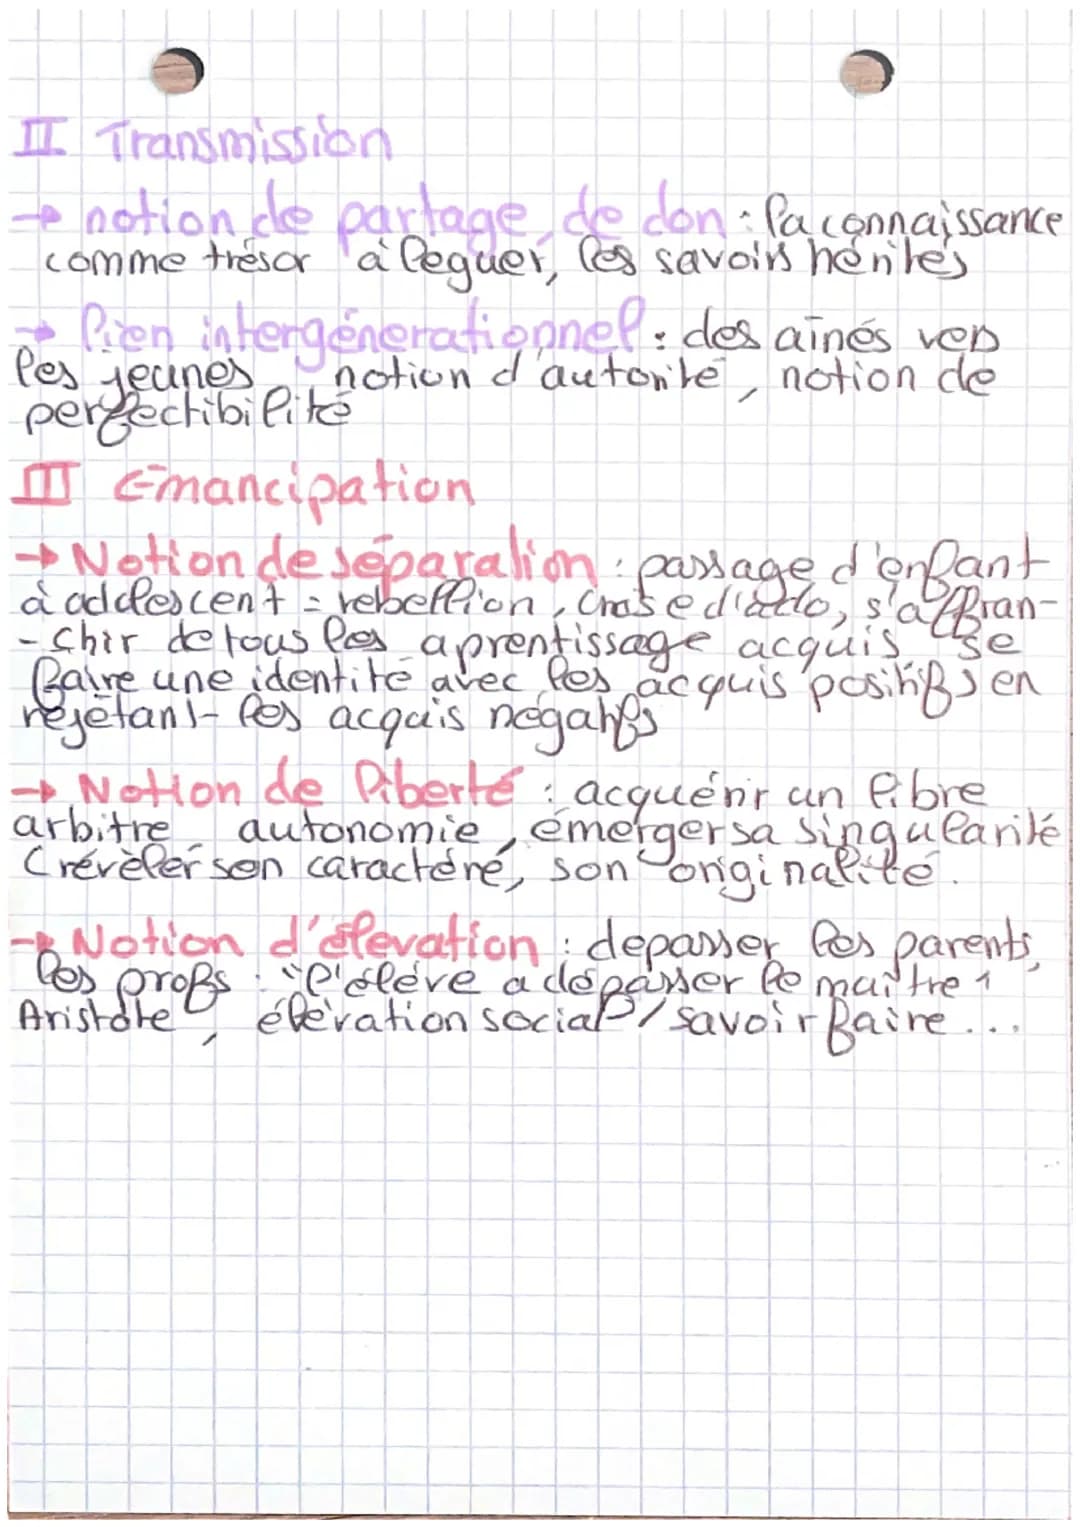 II Transmission
→ notion de partage, de don : la connaissance
comme trésor à leguer, les savoirs hérités
→ lien intergénerationnel : des aînés vers
les jeunes, notion d'autorité, notion de
perfectibilité
III Emancipation
→ Notion de séparation : passage d'enfant
à adolescent = rebellion, crise d'ado, s'affran-
-chir de tous les aprentissage acquis se
faire une identité avec les acquis positifs en
rejetant les acquis négatifs
→ Notion de liberté : acquérir un libre
arbitre, autonomie, émerger sa singularité
(révéler son caractéré, son originalité.
→ Notion d'élevation : depasser les parents,
les profs : "l'élève a dépasser le maître"
Aristote, élévation social / savoir faire ...